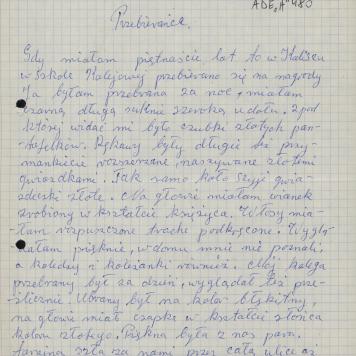 ADE "A" 480
Przebierańce.
Gdy miałam piętnaście lat to w Kaliszu
w Szkole Kolejowej przebierano się na nagrody
Ja byłam przebrana za noc, miałam
czarną długą suknie szeroką u dołu. Spod
której widać mi było czubki złotych pan-
tofelków. Rękawy były długie bez przy
mankiecie rozszerzane, naszywane złotymi
gwiazdkami. Tak samo koło szyji gwia-
zdeczki złote. Na głowie miałam wianek
zrobiony w kształcie księżyca. Włosy mia-
łam rozpuszczone trochę podkręcone. Wyglą-
dałam pięknie, w domu mnie nie poznali,
a koledzy i koleżanki również. Mój kolega
przebrany był za dzień, wyglądał też prze-
ślicznie. Ubrany był na kolor błękitny,
na głowie miał czapkę w kształcie słońca
koloru złotego. Piękna była z nas para.
szła za nami przez całą ulicę aż